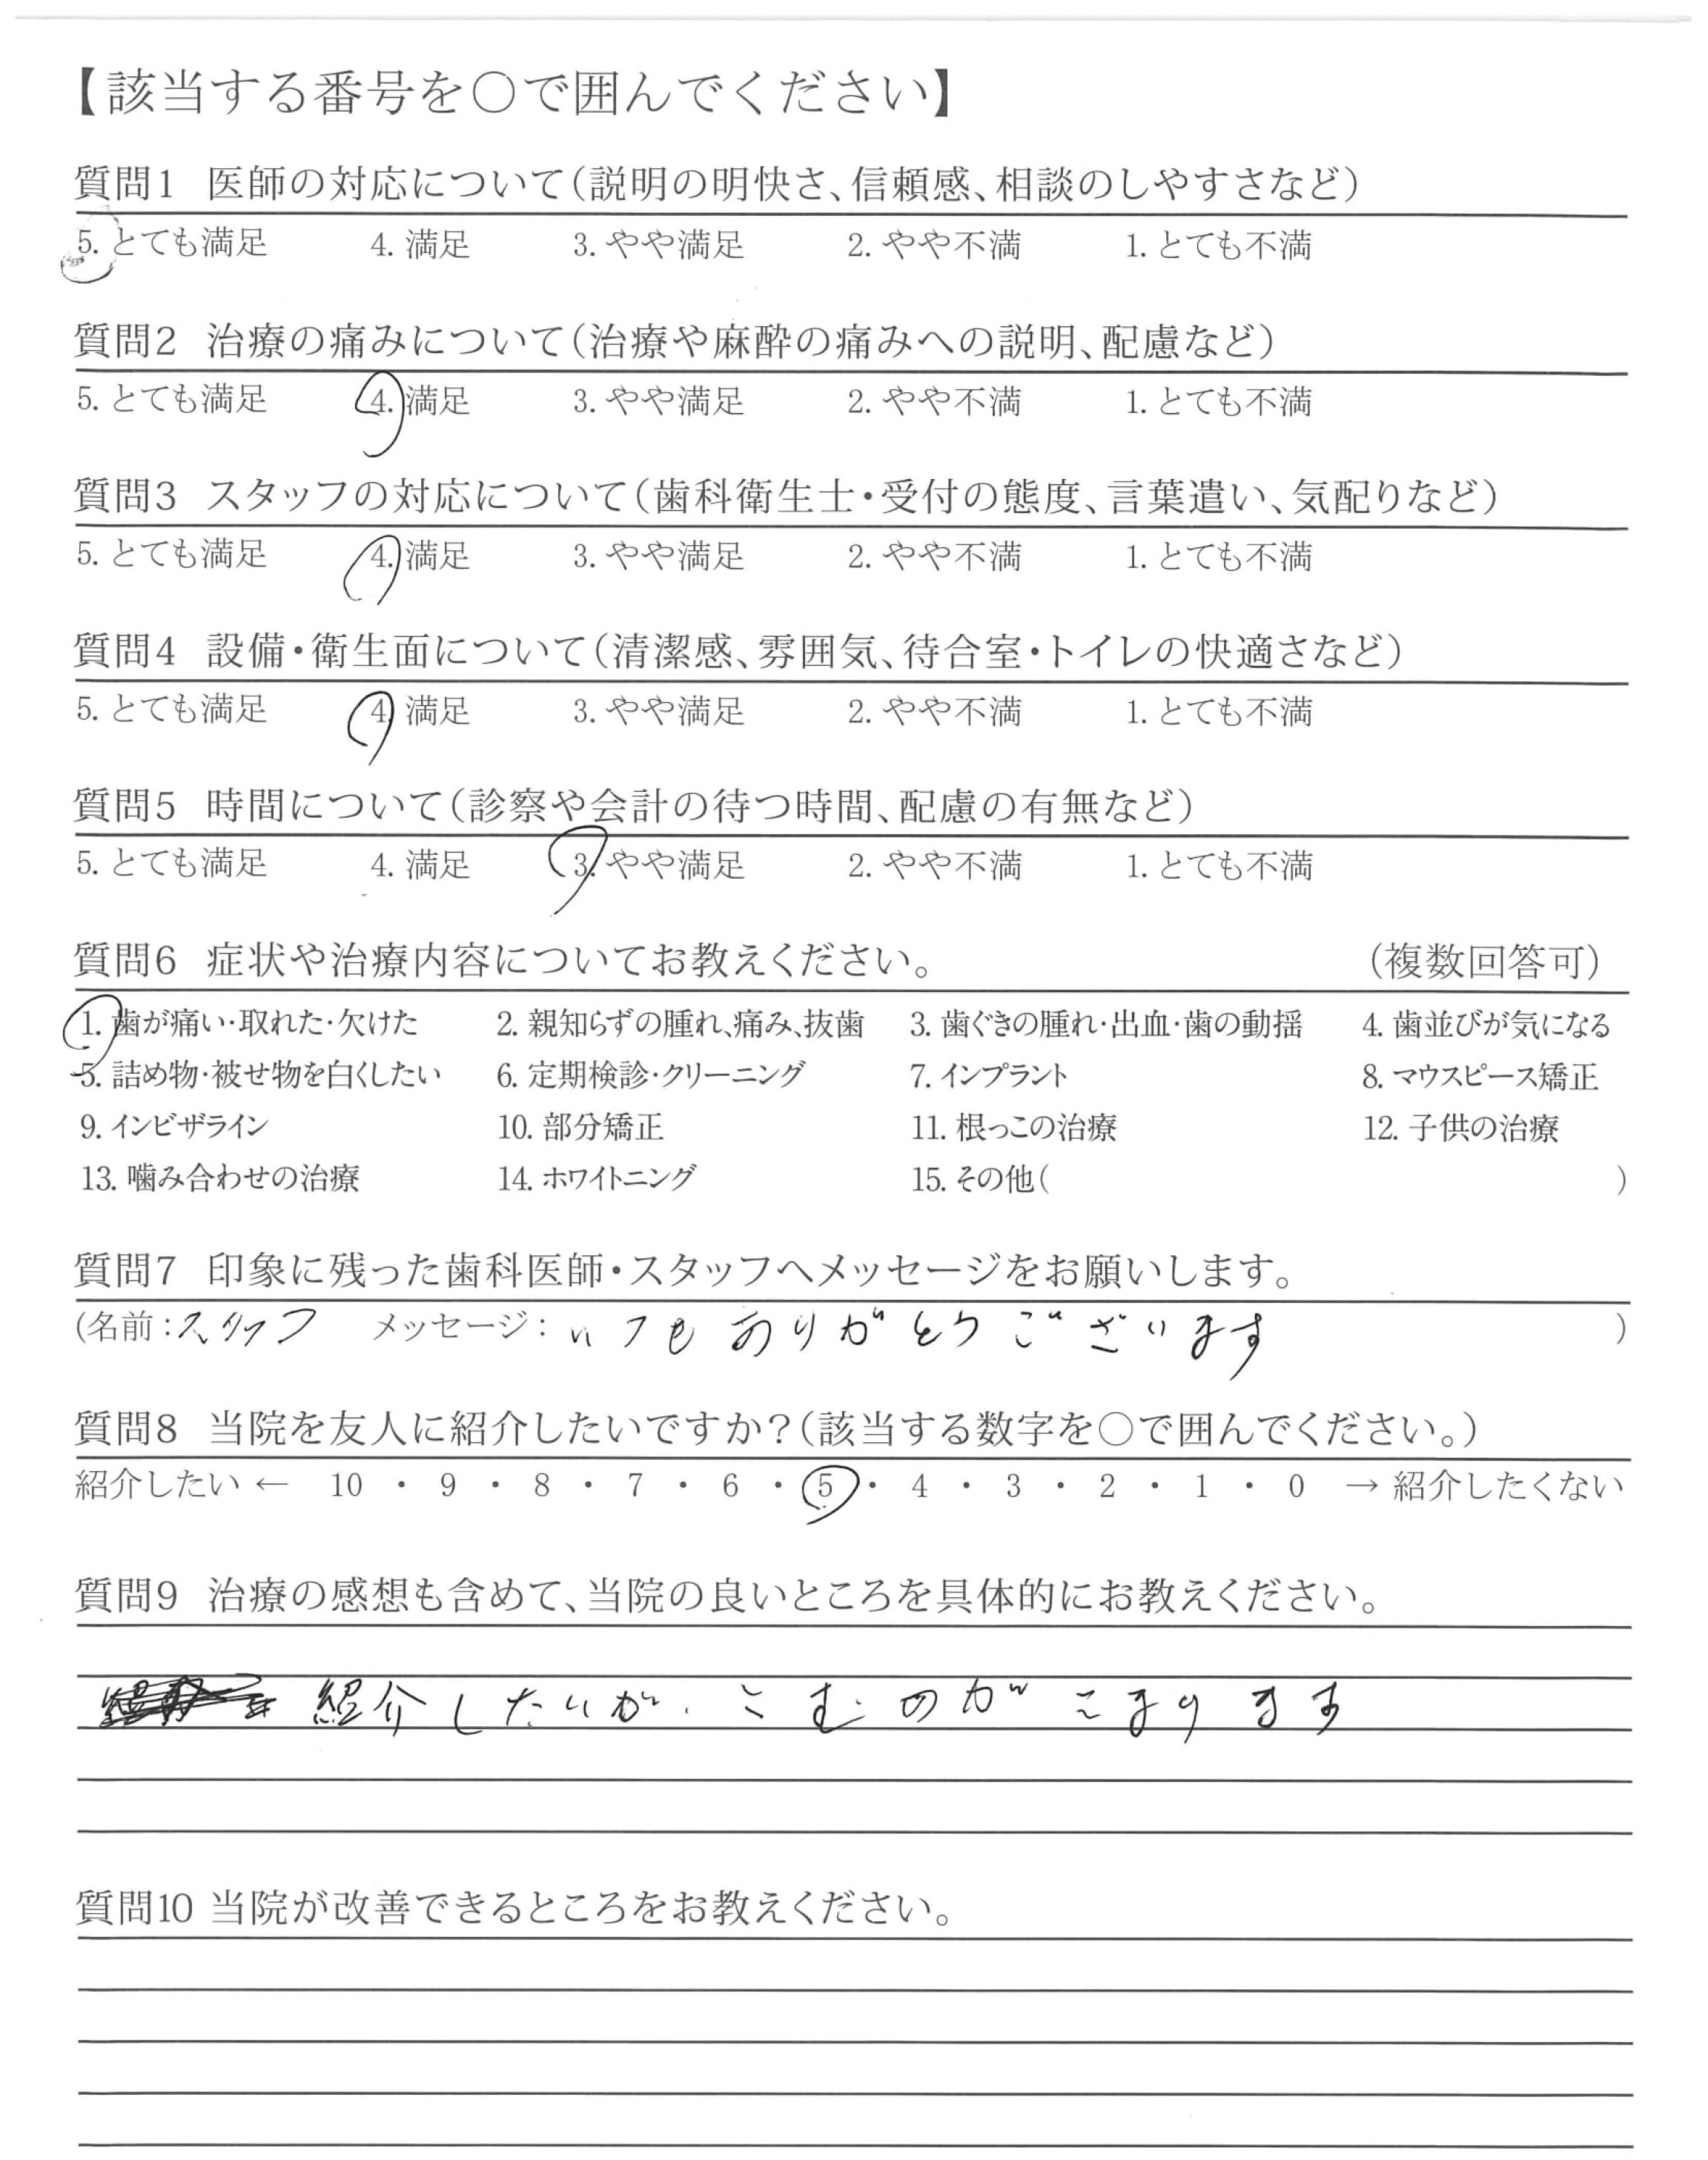 【該当する番号を○で囲んでください】
質問1 医師の対応について(説明の明快さ、信頼感、相談のしやすさなど)
5. とても満足 4. 満足 3. やや満足 2. やや不満 1. とても不満
質問2 治療の痛みについて(治療や麻酔の痛みへの説明、配慮など)
5. とても満足 4. 満足 3. やや満足 2. やや不満 1. とても不満
質問3 スタッフの対応について(歯科衛生士・受付の態度、言葉遣い、気配りなど)
5. とても満足 4. 満足 3. やや満足 2. やや不満 1. とても不満
質問4 設備・衛生面について(清潔感、雰囲気、待合室・トイレの快適さなど)
5. とても満足 4. 満足 3. やや満足 2. やや不満 1. とても不満
質問5 時間について(診察や会計の待つ時間、配慮の有無など)
5. とても満足 4. 満足 3. やや満足 2. やや不満 1. とても不満
質問6 症状や治療内容についてお教えください。 (複数回答可)
1. 歯が痛い・取れた・欠けた 2. 親知らずの腫れ、痛み、抜歯 3. 歯ぐきの腫れ・出血・歯の動揺 4. 歯並びが気になる
5. 詰め物・被せ物を白くしたい 6. 定期検診・クリーニング 7. インプラント 8. マウスピース矯正
9. インビザライン 10. 部分矯正 11. 根っこの治療 12. 子供の治療
13. 噛み合わせの治療 14. ホワイトニング 15. その他( )
質問7 印象に残った歯科医師・スタッフへメッセージをお願いします。
(名前:スタッフ メッセージ: いつもありがとうございます )
質問8 当院を友人に紹介したいですか?(該当する数字を○で囲んでください。)
紹介したい ← 10 ・ 9 ・ 8 ・ 7 ・ 6 ・ 5 ・ 4 ・ 3 ・ 2 ・ 1 ・ 0 → 紹介したくない
質問9 治療の感想も含めて、当院の良いところを具体的にお教えください。
紹介したいが、こむのがこまります
質問10 当院が改善できるところをお教えください。